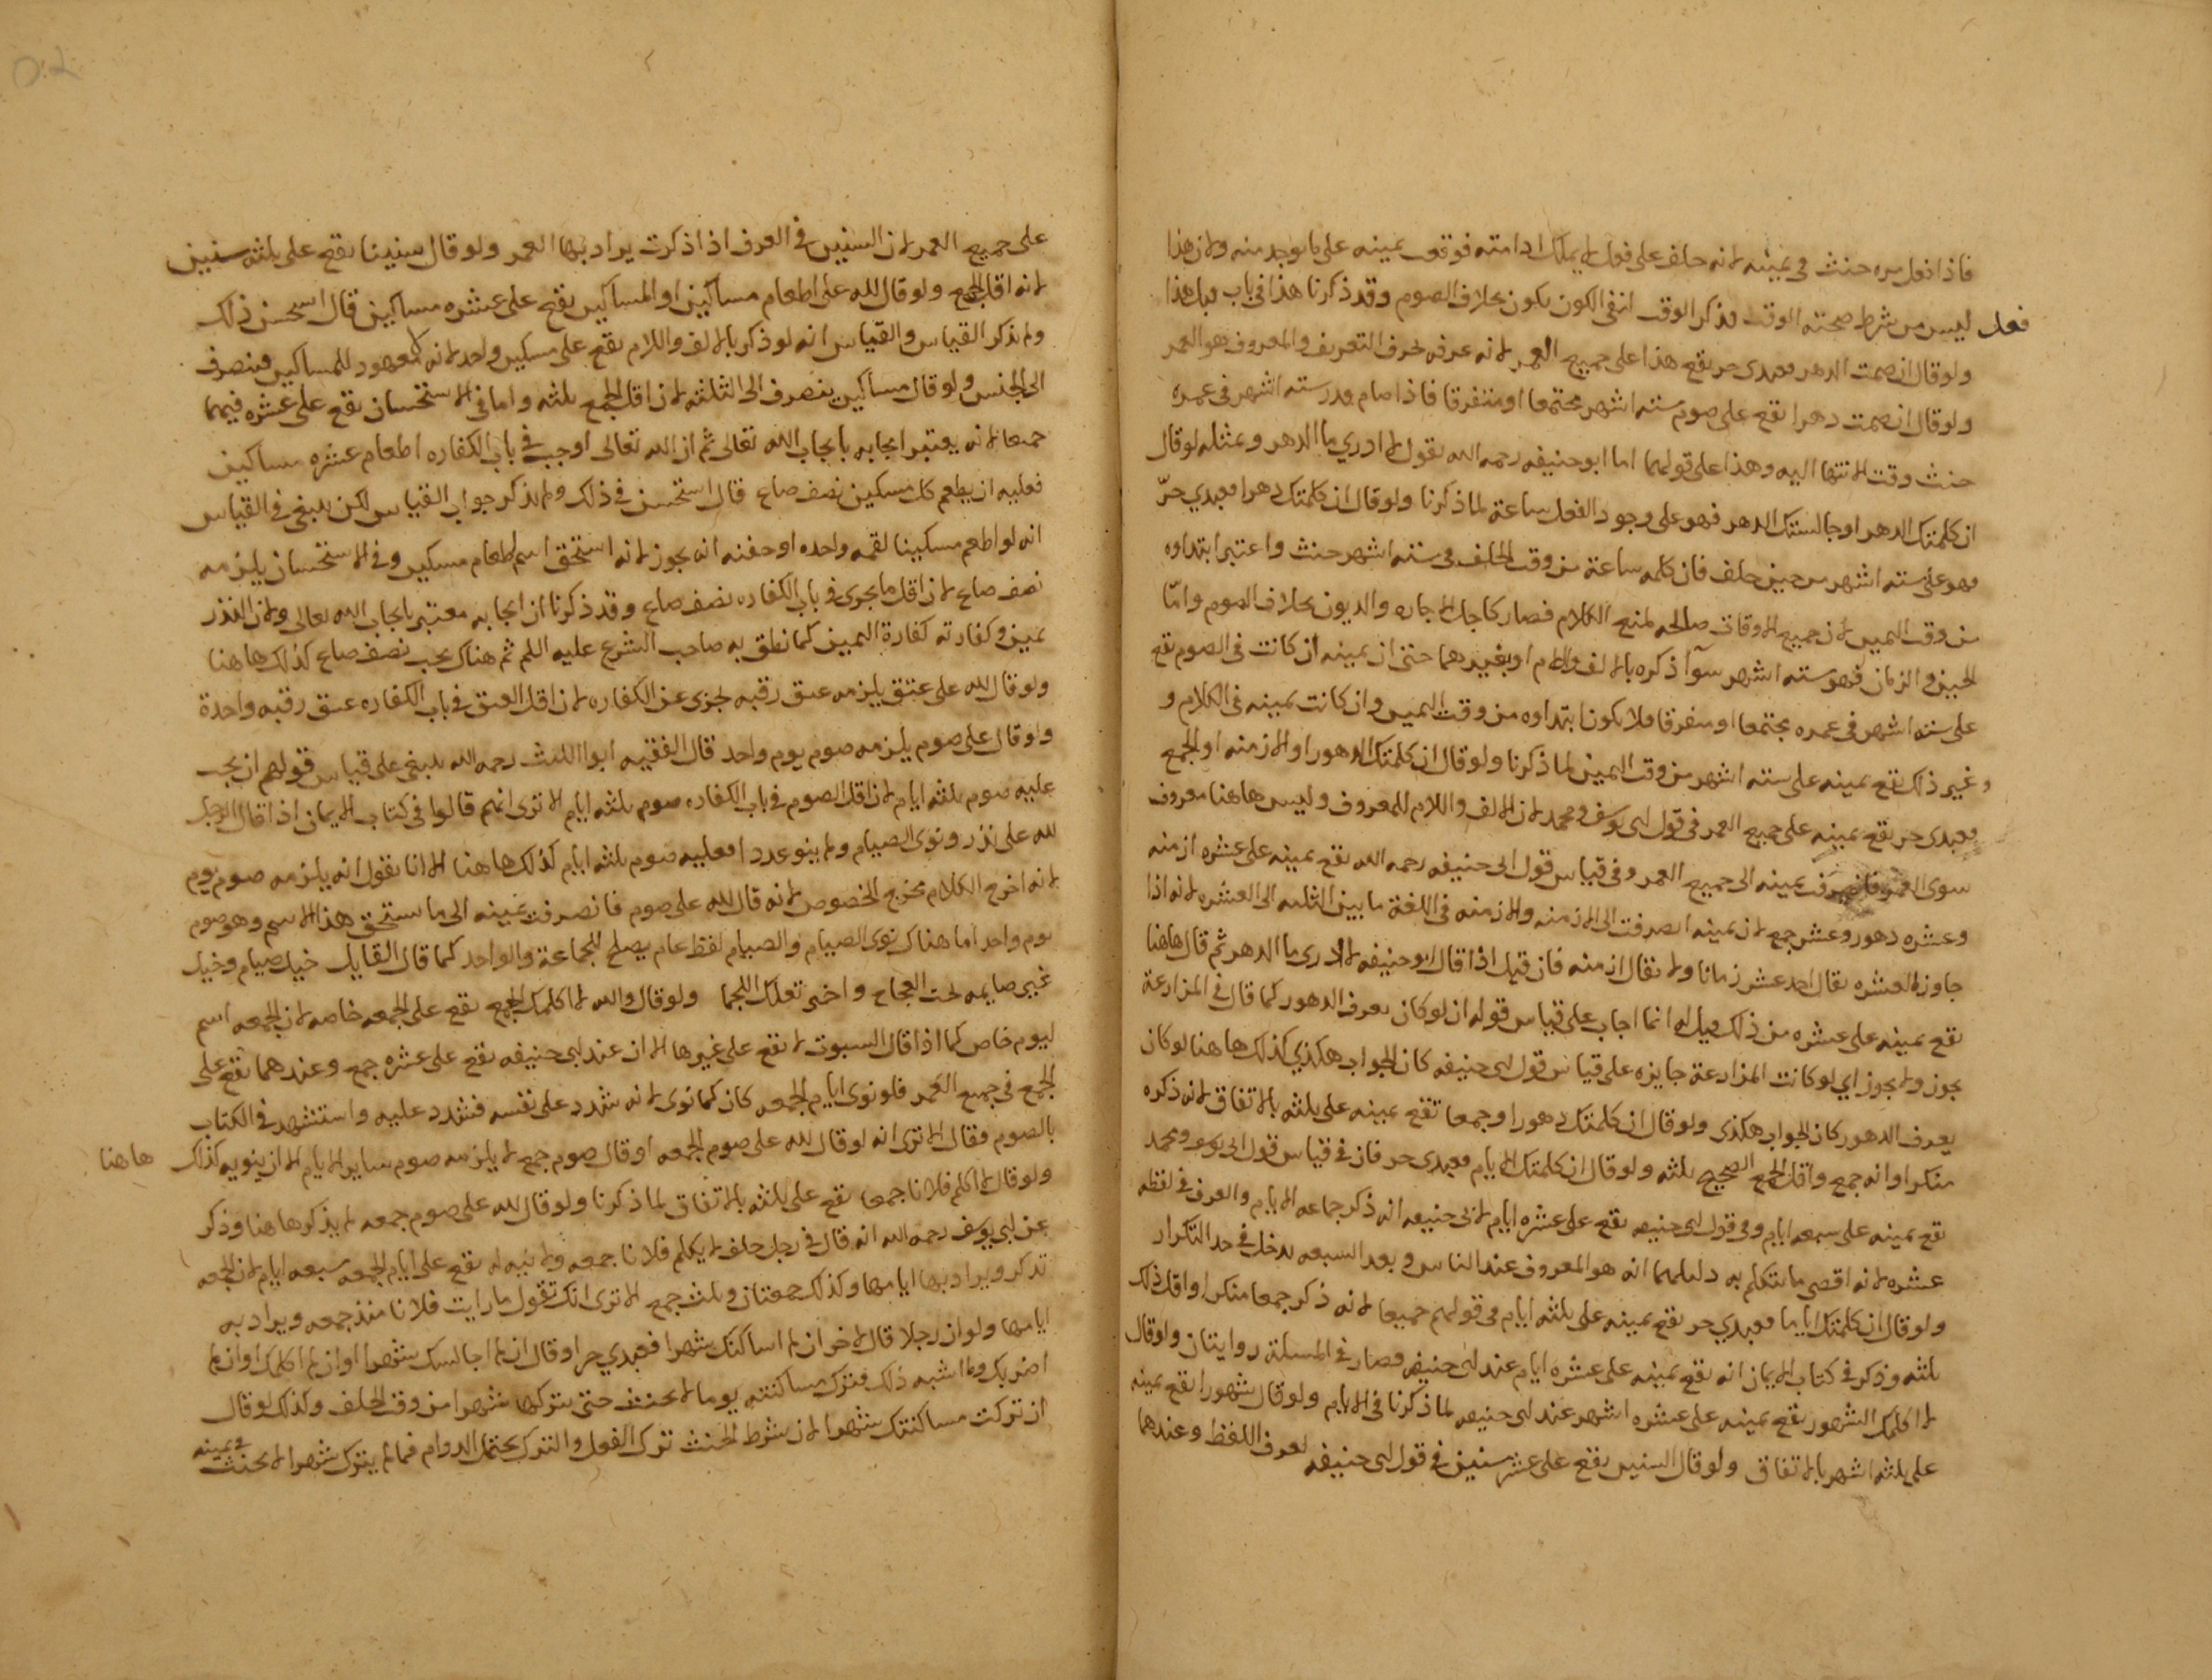 فاذا فعل مره حنث في يمينه لانه حلف على فعل لا يملك ادامته فوقعت يمينه على ما يوجد منه ولان هذا
فعل ليس من شرط صحته الوقت فذكر الوقت انفي الكون يكون بخلاف الصوم وقد ذكرنا هذا في باب قبل هذا
ولو قال ان صمت الدهر فعبدي حر يقع هذا على جميع العمر لانه عرفه بحرف التعريف والمعروف هو العمر
ولو قال ان صمت دهرا يقع على صوم سته اشهر مجتمعا او متفرقا فاذا صام قدر سته اشهر في عمره
حنث وقت الانتها اليه وهذا على قولهما اما ابو حنيفه رحمه الله يقول لا ادري ما الدهر وبمثله لو قال
ان كلمتك الدهر او جالستك الدهر فهو على وجود الفعل ساعة لما ذكرنا ولو قال ان كلمتك دهرا فعبدي حر
فهو على سته اشهر من حين حلف فان كلمه ساعة من وقت الحلف في سته اشهر حنث واعتبر ابتداوه
من وقت اليمين لان جميع الاوقات صالحه لمنع الكلام فصار كاجل الاجاره والديون بخلاف الصوم واما
الحين والزمان فهو سته اشهر سوآ ذكره بالالف واللام او بغيرهما حتى ان يمينه ان كانت في الصوم يقع
على سته اشهر في عمره مجتمعا او متفرقا ولا يكون ابتداوه من وقت اليمين وان كانت يمينه في الكلام و
وغير ذلك يقع يمينه على سته اشهر من وقت اليمين لما ذكرنا ولو قال ان كلمتك الدهور او الازمنه او الجمع
فعبدي حر يقع يمينه على جميع العمر في قول ابى يوسف ومحمد لان الالف واللام للمعروف وليس هاهنا معروف
سوى العمر فانصرفت يمينه الى جميع العمر وفي قياس قول ابى حنيفه رحمه الله يقع يمينه على عشره ازمنه
وعشره دهور وعشر جمع لان يمينه انصرفت الى الازمنه والازمنه في اللغة ما بين الثلثه الى العشره لانه اذا
جاوز العشره يقال احد عشر زمانا ولا يقال ازمنه فان قيل اذا قال ابو حنيفه لا ادرى ما الدهر ثم قال هاهنا
يقع يمينه على عشره من ذلك قيل له انما اجاب على قياس قوله ان لو كان يعرف الدهور كما قال في المزارعة
يجوز ولا يجوز اي لو كانت المزارعة جايزه على قياس قول ابى حنيفه كان الجواب هكذي كذلك هاهنا لو كان
يعرف الدهور كان الجواب هكذى ولو قال ان كلمتك دهورا وجمعا تقع يمينه على ثلثه بالاتفاق لانه ذكره
منكرا وانه جمع واقل الجمع الصحيح ثلثه ولو قال ان كلمتك الايام فعبدى حر فان في قياس قول ابى يوسف ومحمد
يقع يمينه على سبعه ايام وفي قول ابى حنيفه يقع على عشره ايام لابى حنيفه انه ذكر جماعه الايام والعرف في لفظه
عشره لانه اقصى ما يتكلم به دليلهما انه هو المعروف عند الناس وبعد السبعه يدخل في حد التكرار
ولو قال ان كلمتك اياما فعبدي حر يقع يمينه على ثلثه ايام في قولهم جميعا لانه ذكر جمعا منكرا واقل ذلك
ثلثه وذكر في كتاب الايمان انه يقع يمينه على عشره ايام عند ابى حنيفه فصار في المسئلة روايتان ولو قال
لا اكلمك الشهور يقع يمينه على عشره اشهر عند ابى حنيفه لما ذكرنا في الايام ولو قال شهورا يقع يمينه
على ثلثه اشهر بالاتفاق ولو قال السنين يقع على عشر سنين في قول ابى حنيفه لعرف اللفظ وعندهما
على جميع العمر لان السنين في العرف اذا ذكرت يراد بها العمر ولو قال سنينا يقع على ثلثه سنين
لانه اقل الجمع ولو قال لله على اطعام مساكين او المساكين يقع على عشره مساكين قال استحسن ذلك
ولم يذكر القياس والقياس انه لو ذكر بالالف واللام يقع على مسكين واحد لانه لا معهود للمساكين فينصرف
الى الجنس ولو قال مساكين ينصرف الى الثلثه لان اقل الجمع ثلثه واما في الاستحسان يقع على عشره فيهما
جميعا لانه يعتبر ايجابه بايجاب الله تعالى ثم ان الله تعالى اوجب في باب الكفاره اطعام عشره مساكين
فعليه ان يطعم كل مسكين نصف صاع قال استحسن في ذلك ولم يذكر جواب القياس لكن ينبغى في القياس
انه لو اطعم مسكينا لقمه واحده او حفنه انه يجوز لانه استحق اسم اطعام مسكين وفي الاستحسان يلزمه
نصف صاع لان اقل ما يجزى في باب الكفاره نصف صاع وقد ذكرنا ان ايجابه معتبر بايجاب الله تعالى ولان النذر
يمين وكفارته كفارة اليمين كما نطق به صاحب الشرع عليه اللم ثم هناك يجب نصف صاع كذلك هاهنا
ولو قال لله على عتق يلزمه عتق رقبه تجزى عن الكفاره لان اقل العتق في باب الكفاره عتق رقبه واحدة
ولو قال على صوم يلزمه صوم يوم واحد قال الفقيه ابو الليث رحمه الله ينبغى على قياس قولهم ان يجب
عليه صوم ثلثه ايام لان اقل الصوم في باب الكفاره صوم ثلثه ايام الا ترى انهم قالوا في كتاب الايمان اذا قال الرجل
لله على نذر ونوى الصيام ولم ينو عددا فعليه صوم ثلثه ايام كذلك هاهنا الا انا نقول انه يلزمه صوم يوم
لانه اخرج الكلام مخرج الخصوص لانه قال لله على صوم فانصرفت يمينه الى ما يستحق هذا الاسم وهو صوم
يوم واحد اما هناك نوى الصيام والصيام لفظ عام يصلح للجماعة والواحد كما قال القايل خيل صيام وخيل
غير صايمه تحت العجاج واخرى تعلك اللجما ولو قال والله لا اكلمك الجمع يقع على الجمعه خاصه لان الجمعه اسم
ليوم خاص كما اذا قال السبوت لا يقع على غيرها الا ان عند ابى حنيفه يقع على عشره جمع وعندهما يقع على
الجمع في جميع العمر فلو نوى ايام الجمعه كان كما نوى لانه شدد على نفسه فشدد عليه واستشهد في الكتاب
بالصوم فقال الا ترى انه لو قال لله على صوم الجمعه او قال صوم جمع لا يلزمه صوم ساير الايام الا ان ينويه كذلك هاهنا
ولو قال لا اكلم فلانا جمعا يقع على ثلثه بالاتفاق لما ذكرنا ولو قال لله على صوم جمعه لم يذكرها هنا وذكر
عن ابى يوسف رحمه الله انه قال في رجل حلف لا يكلم فلانا جمعه ولا نيه له يقع على ايام الجمعه سبعه ايام لان الجمعه
تذكر ويراد بها ايامها وكذلك جمعتان وثلث جمع الا ترى انك تقول ما رايت فلانا منذ جمعه ويراد به
ايامها ولو ان رجلا قال لاخر ان لم اساكنك شهرا فعبدي حر او قال ان لم اجالسك شهرا او ان لم اكلمك او ان لم
اضربك وما اشبه ذلك فترك مساكنته يوما لا يحنث حتى يتركها شهرا من وقت الحلف وكذلك لو قال
ان تركت مساكنتك شهرا لان شرط الحنث ترك الفعل والترك يحتمل الدوام فما لم يترك شهرا لا يحنث في يمينه